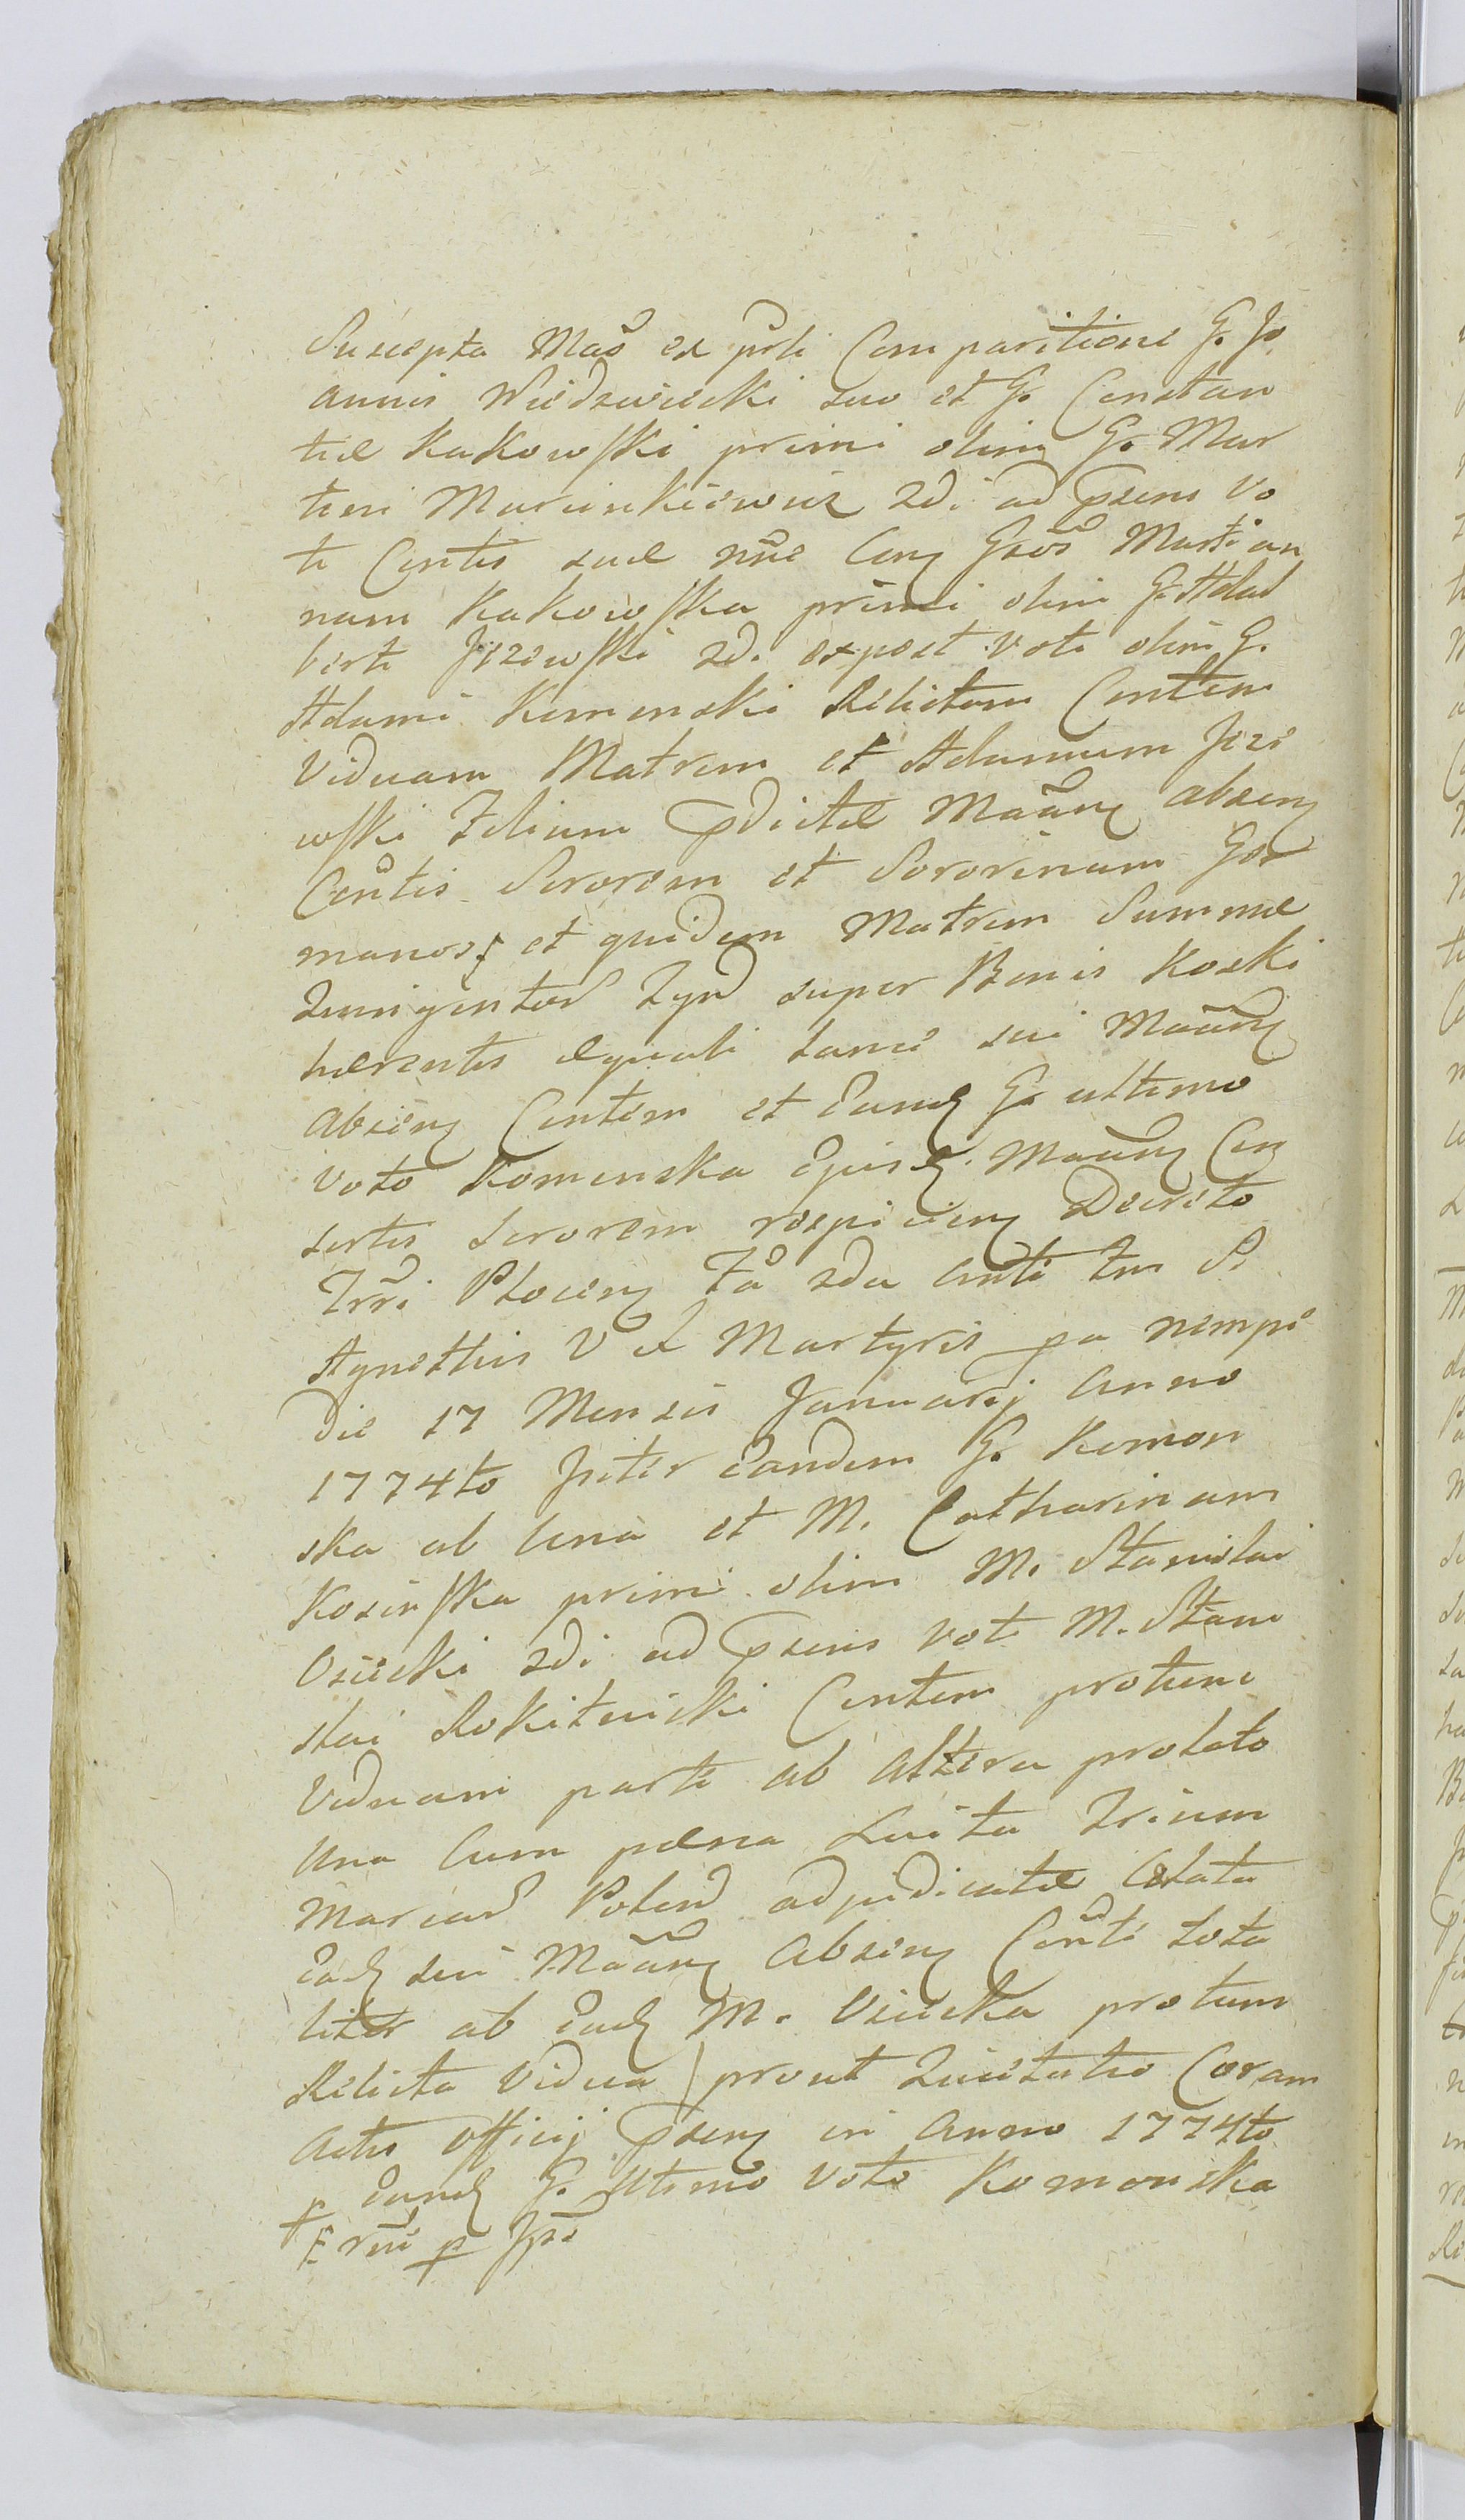 Suscepta Mas̃ ex pr̃li Comparitione G. Jo
annis Niedzwiecki suo et G. Constan
tiæ Kakowski primi olim G. Mar
tini Marcinkiewicz 2di ad psens vo
ti Cõntis suæ nõie Con Gsõs Marian
nam Kakowska primi olim G. Adal
berti Jezewski 2di expost voti olim G.
Adami Komenski Relictam Contem
Viduam Matrem et Adamum Jeze
wski Filium pdictæ Mãanæ absen
Cõntis Sororem et Sororinum Ger
manos et quidem Matrem Summæ
Quingentor flor super Bonis Koski
hærentis æquali lance sui Mãan
absen Contem et Eand G. ultimo
voto Komenska Ejusd Mãan Con
sortis Sororem respicien Decreto
Trr̃i Plocen Fã 2da anti Fm S.
Agnethis V et Martyris pa nempe
Die 17 Mensis Januarij Anno
1774to Inter Eandem G. Komon
ska ab una et M. Catharinam
Kosinska primi olim M. Stanislai
Osiecki 2di ad psens voti M. Stani
slai Rokitnicki Contem protunc
Viduam parte ab altera prolato
una cum pæna Luita Trium
Marcar Polon adjudicatæ solutæ
Ead sui Mãan absen Cõnti tota
liter ab Ead M. Osiecka protunc
Relicta Vidua / prout Quietatio Coram
Actis Officij psen in Anno 1774to
p Eand G. Ultimo Voto Komonska